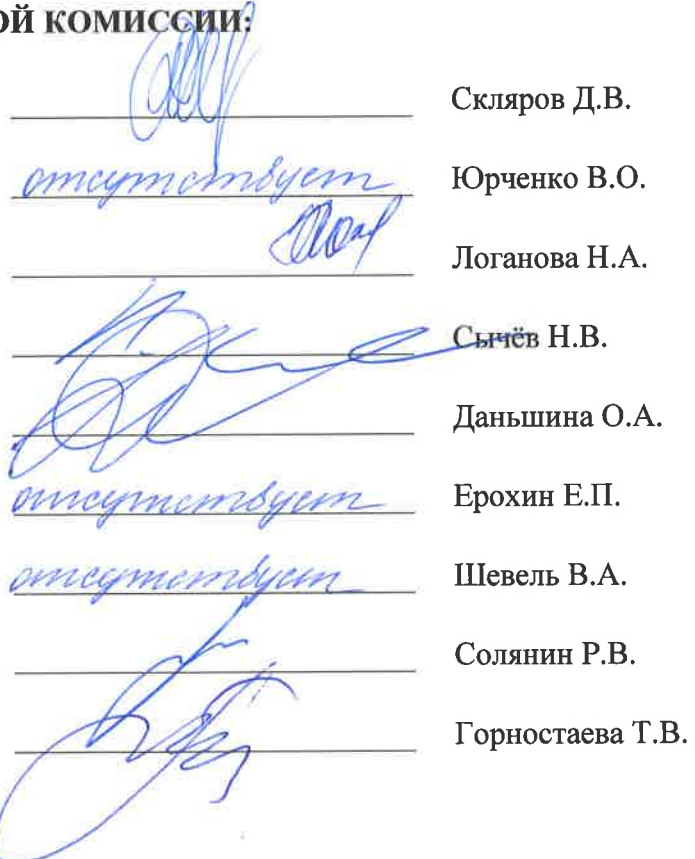 ОЙ КОМИССИИ:
Скляров Д.В.
отсутствует Юрченко В.О.
Логанова Н.А.
Сычёв Н.В.
Даньшина О.А.
отсутствует Ерохин Е.П.
отсутствует Шевель В.А.
Солянин Р.В.
Горностаева Т.В.